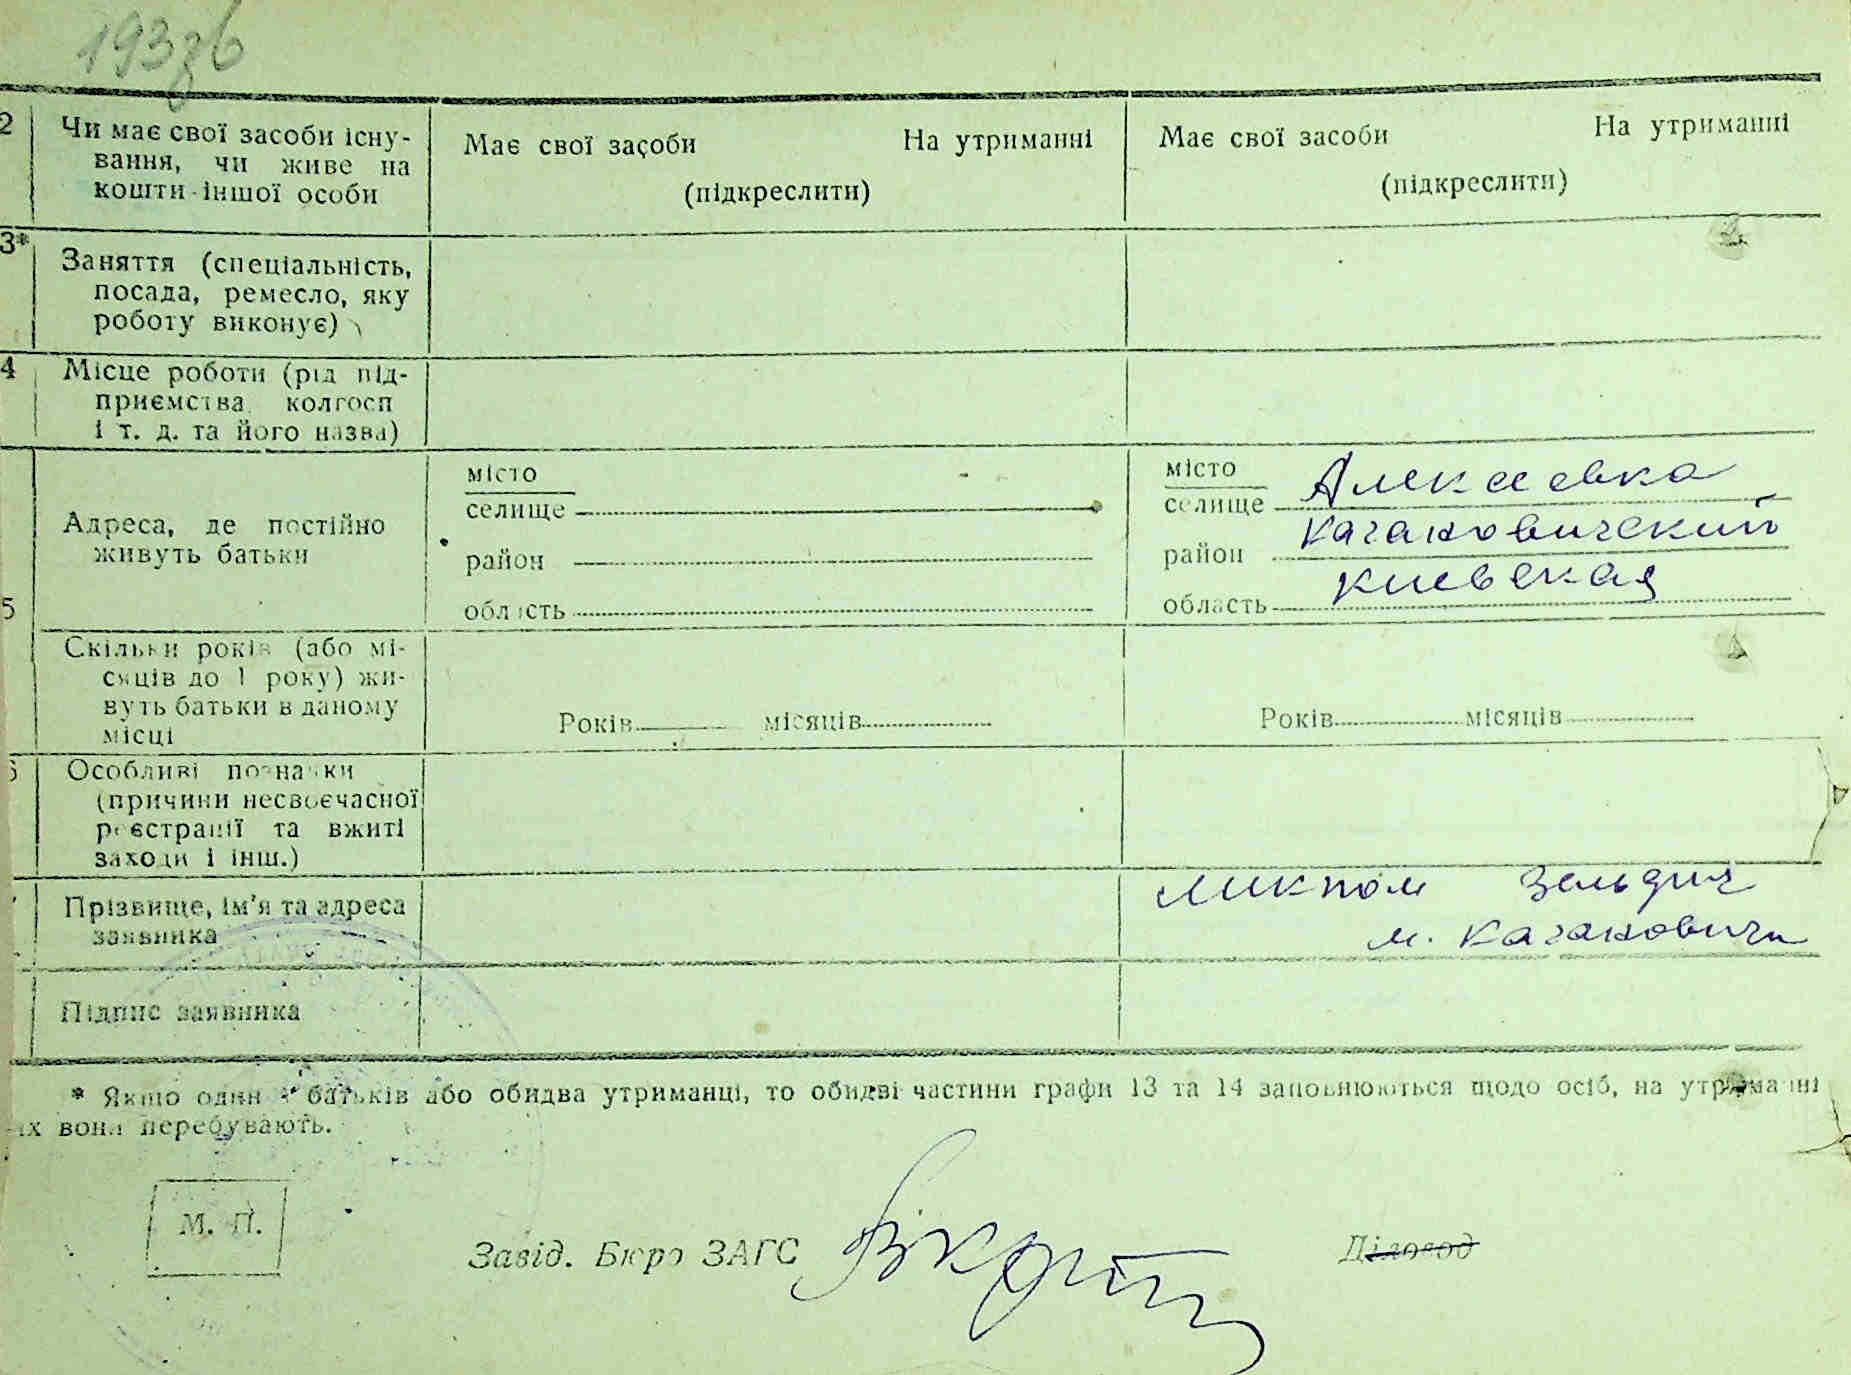 2 Чи має свої засоби існу-
вання, чи живе на
кошти іншої особи
Має свої засоби На утриманні
(підкреслити)
Має свої засоби На утриманні
(підкреслити)
3* Заняття (спеціальність,
посада, ремесло, яку
роботу виконує)
4 Місце роботи (рід під-
приємства колгосп
і т. д. та його назва)
5 Адреса, де постійно
живуть батьки
місто
селище
район
область
місто
селище Алексеевка
район Кагановичский
область Киевская
Скільки років (або мі-
сяців до 1 року) жи-
вуть батьки в даному
місці
Років місяців
Років місяців
Особливі позначки
(причини несвоєчасної
реєстрації та вжиті
заходи і інш.)
Прізвище, ім'я та адреса
заявника
Зельдич
м. Кагановичи
Підпис заявника
* Якщо один з батьків або обидва утриманці, то обидві частини графи 13 та 14 заповнюються щодо осіб, на утриманні
їх вони перебувають.
М. П.
Завід. Бюро ЗАГС
Діловод